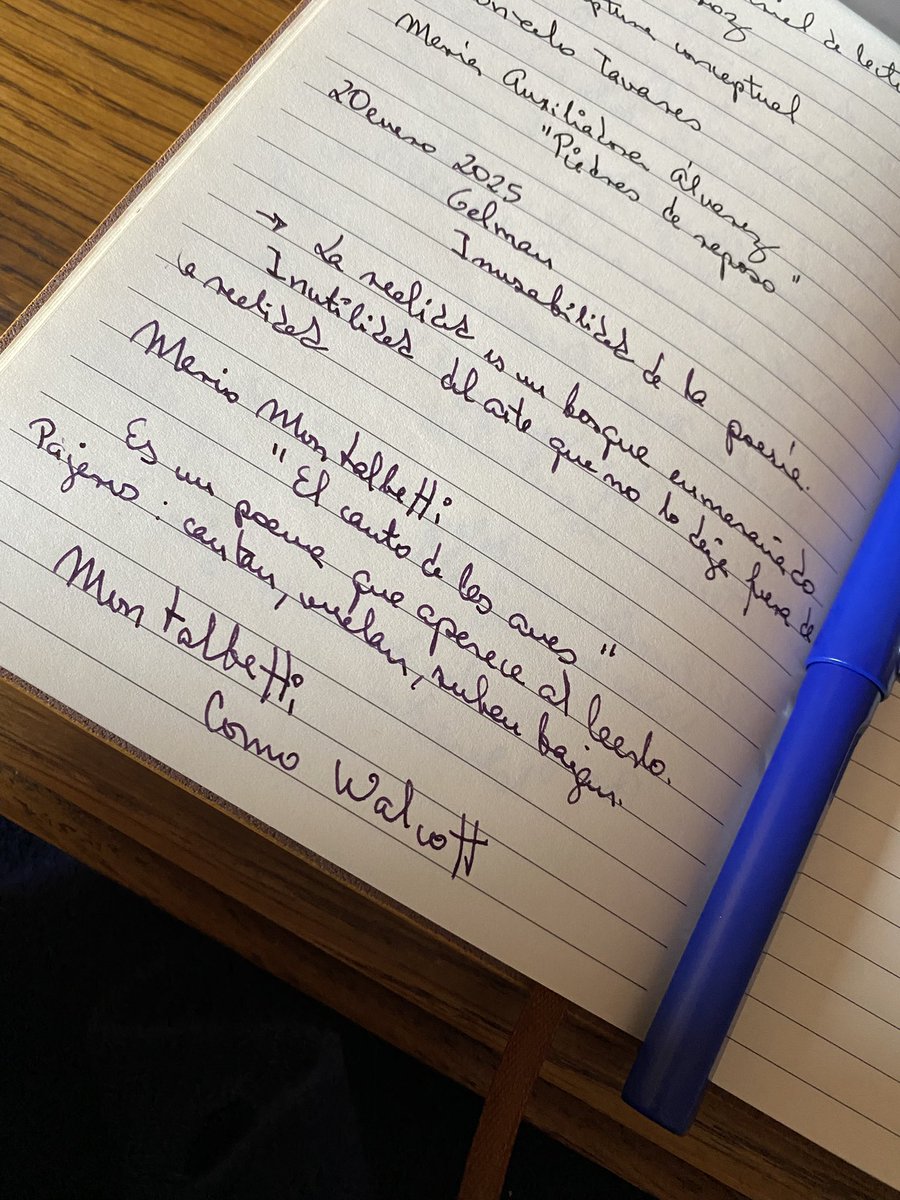 de lectu
conceptual
Tavares
María Auxiliadora Álvarez
"Piedras de reposo"
20 enero 2025
Gelman
Inusabilidad de la poesía.
→ La realidad es un bosque enmarañado
Inutilidad del arte que no lo deja fuera de
la realidad
Mario Montalbetti
"El canto de las aves"
Es un poema que aparece al leerlo.
Pájaros: cantan, vuelan, suben bajan.
Montalbetti
Como Walcott